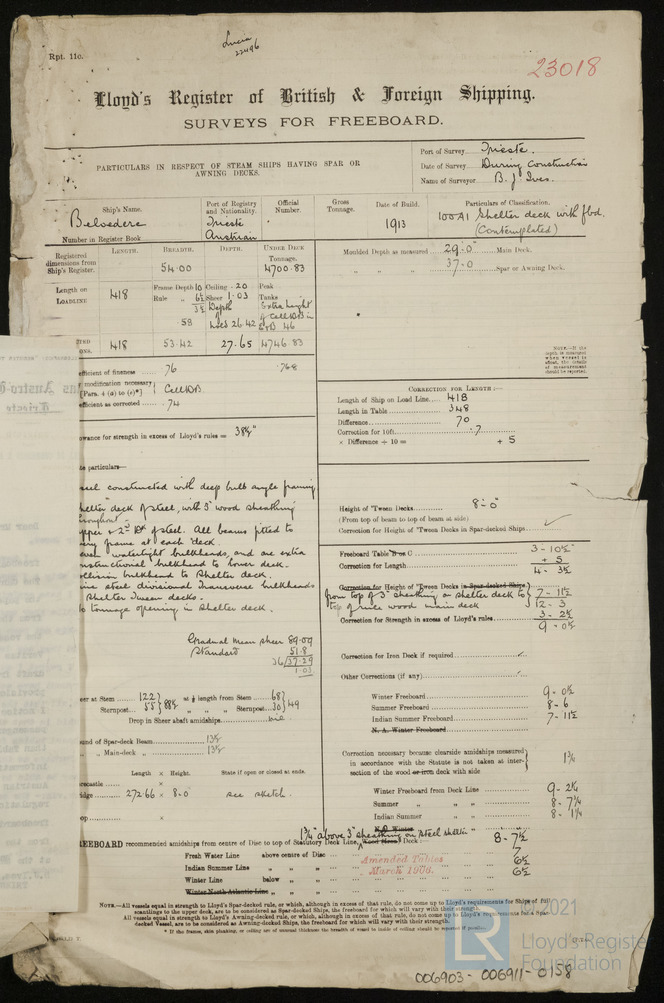 Rpt. 11c.
Lucia
22496
23018
Lloyd's Register of British & Foreign Shipping.
SURVEYS FOR FREEBOARD.
PARTICULARS IN RESPECT OF STEAM SHIPS HAVING SPAR OR
AWNING DECKS.
Port of Survey Trieste.
Date of Survey During Construction
Name of Surveyor B. J. Ives.
Ship's Name.
Belvedere
Number in Register Book
Port of Registry
and Nationality.
Trieste
Austrian
Official
Number.
Gross
Tonnage.
Date of Build.
1913
Particulars of Classification.
100A1 Shelter deck with fbd.
(Contemplated)
Registered
dimensions from
Ship's Register.
LENGTH.
BREADTH.
54.00
DEPTH.
UNDER DECK
Tonnage.
4700.83
Moulded Depth as measured 29.0 Main Deck.
" " " 37.0 Spar or Awning Deck.
Length on
LOADLINE
418
Frame Depth 10
Rule " 6½
3½
58
Ceiling .20
Sheer 1.03
Depth
of
hold 26.42
Peak
Tanks
Extra height
of Cell DB in
46
418
53.42
27.65
4746.83
efficient of fineness 76
.768
modification necessary
[Para. 4 (a) to (e)*]
Cell DB
efficient as corrected .74
CORRECTION FOR LENGTH:—
Length of Ship on Load Line 418
Length in Table 348
Difference 70
Correction for 10ft. .7
× Difference ÷ 10 = + 5
owance for strength in excess of Lloyd's rules = 38½"
te particulars—
sel constructed with deep bulb angle framing
helter deck of steel, with 3" wood sheathing
throughout.
upper & 2nd Dk of steel. All beams fitted to
every frame at each deck.
even watertight bulkheads, and are extra
nstructional bulkhead to lower deck.
ollision bulkhead to Shelter deck.
ine steel divisional Transverse bulkheads
Shelter Tween decks.
o tonnage opening in Shelter deck.
Height of 'Tween Decks 8-0"
(From top of beam to top of beam at side)
Correction for Height of 'Tween Decks in Spar-decked Ships
Freeboard Table B or C 3-10½"
Correction for Length + 5
4-3½
Correction for Height of 'Tween Decks in Spar-decked Ships
from top of 3" sheathing on shelter deck to
top of wood main deck
7-11½
12-3
Correction for Strength in excess of Lloyd's rules 3-2½
9-0½
Gradual Mean sheer 89.09
Standard 51.8
36/37.29
1.03
Correction for Iron Deck if required
Other Corrections (if any)
Sheer at Stem 122
Sternpost 55
88½
at ⅛ length from Stem 68
" " " Sternpost 30
49
Drop in Sheer abaft amidships nil
Winter Freeboard 9-0½
Summer Freeboard 8-6
Indian Summer Freeboard 7-11½
N. A. Winter Freeboard
und of Spar-deck Beam 13½
" Main-deck " 13½
Correction necessary because clearside amidships measured
in accordance with the Statute is not taken at inter-
section of the wood or iron deck with side
1¾
Length × Height.
State if open or closed at ends.
recastle ×
idge 272.66 × 8-0"
see sketch.
op ×
Winter Freeboard from Deck Line 9-2¼
Summer " " " 8-7¾
Indian Summer " " 8-1¼
N.A. Winter
1¾" above 3" sheathing on steel shelter
REEBOARD recommended amidships from centre of Disc to top of Statutory Deck Line, Wood Deck :— 8-7½
Fresh Water Line above centre of Disc 7
Indian Summer Line " " " 6½
Winter Line below " " 6½
Winter North Atlantic Line " " "
Amended Tables
March 1906.
NOTE.—All vessels equal in strength to Lloyd's Spar-decked rule, or which, although in excess of that rule, do not come up to Lloyd's requirements for Ships of full
scantlings to the upper deck, are to be considered as Spar-decked Ships, the freeboard for which will vary with their strength.
All vessels equal in strength to Lloyd's Awning-decked rule, or which, although in excess of that rule, do not come up to Lloyd's requirements for a Spar
decked Vessel, are to be considered as Awning-decked Ships, the freeboard for which will vary with their strength.
2021
LR
Lloyd's Register
Foundation
006903 - 006911 - 0158